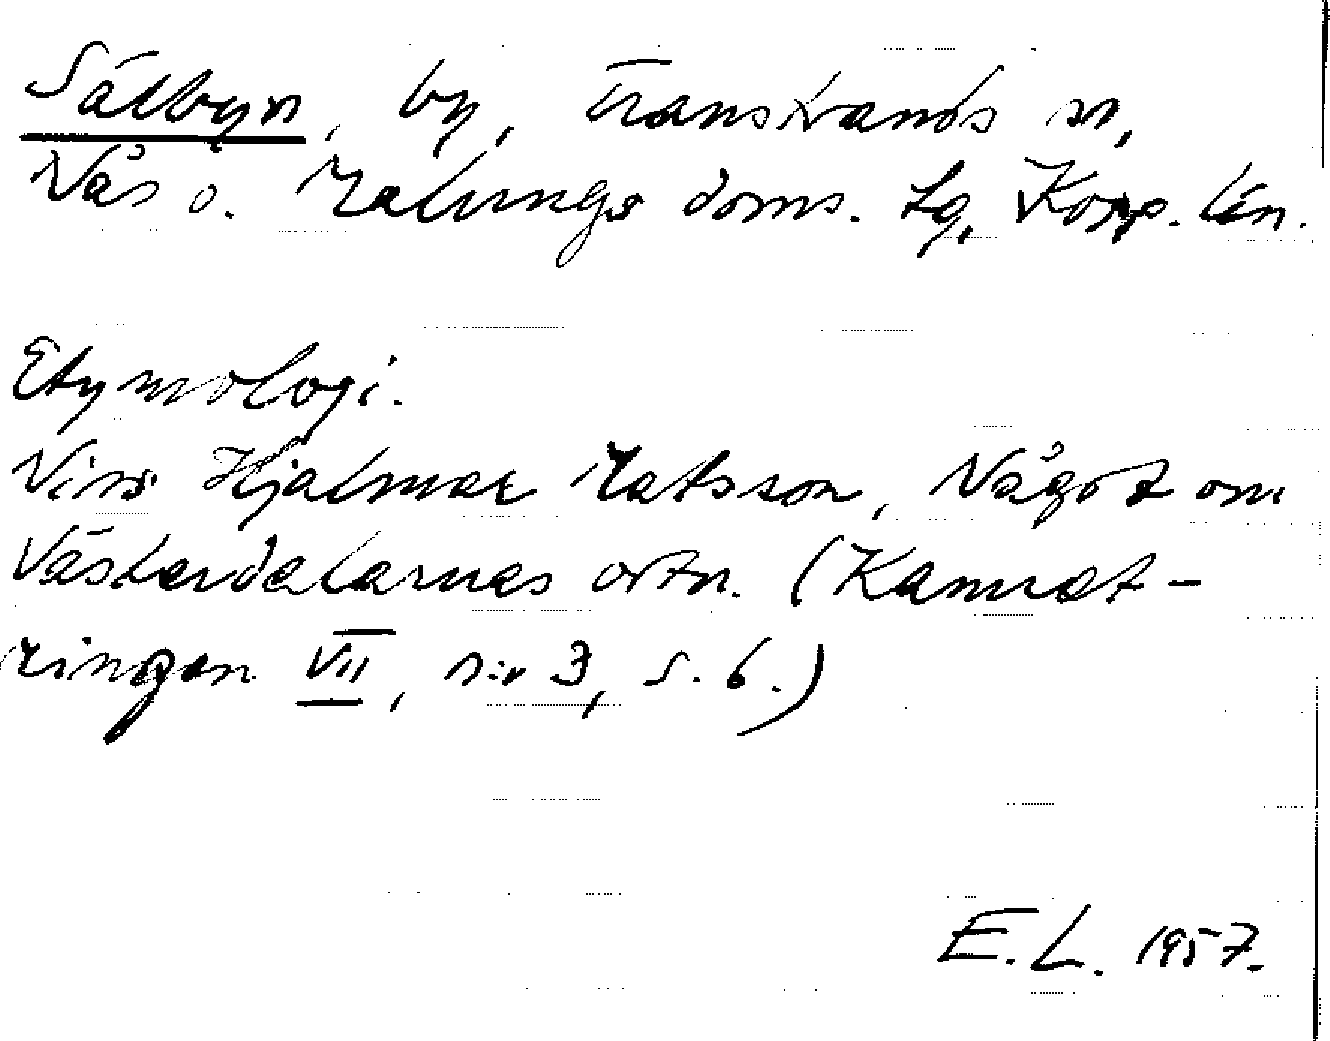 Sälbyn, by, Transtrands sn,
Nås o. Malungs doms. tg, Kopp. län.
Etymologi.
Niss Hjalmar Matsson, Något om
Västerdalarnas ortn. (Kamrat-
ringen VII, n:r 3, s. 6.)
E.L. 1957.